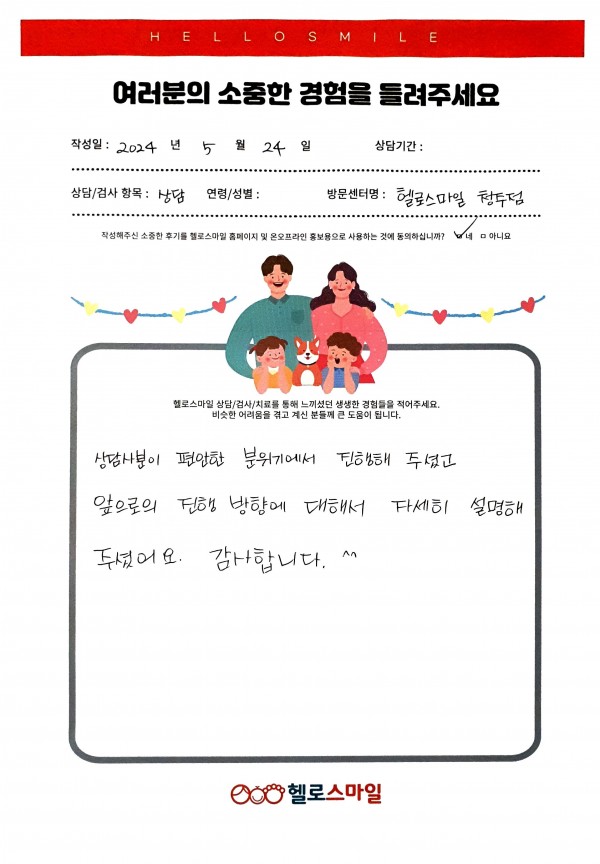 HELLOSMILE
여러분의 소중한 경험을 들려주세요
작성일 : 2024 년 5 월 24 일 상담기간 :
상담/검사 항목 : 상담 연령/성별 : 방문센터명 : 헬로스마일 청주점
작성해주신 소중한 후기를 헬로스마일 홈페이지 및 온오프라인 홍보용으로 사용하는 것에 동의하십니까? ☑네 □아니요
헬로스마일 상담/검사/치료를 통해 느끼셨던 생생한 경험들을 적어주세요.
비슷한 어려움을 겪고 계신 분들께 큰 도움이 됩니다.
상담사분이 편안한 분위기에서 진행해 주셨고
앞으로의 진행 방향에 대해서 자세히 설명해
주셨어요. 감사합니다. ^^
헬로스마일